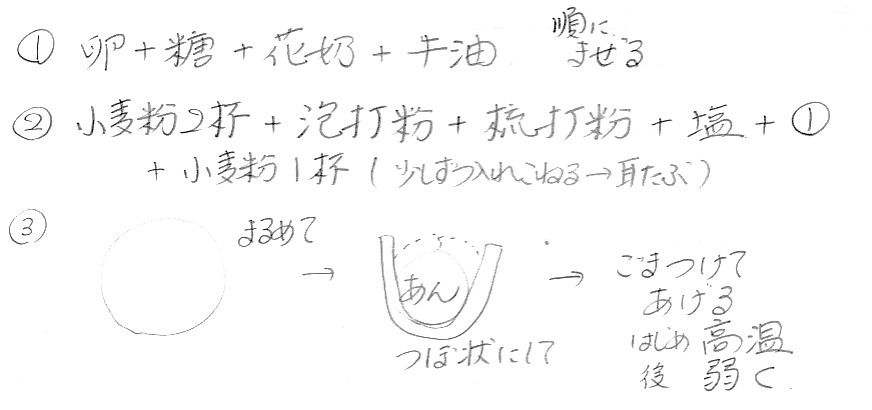 ① 卵+糖+花奶+牛油 順に
まぜる
② 小麦粉2杯+泡打粉+梳打粉+塩+①
+小麦粉1杯(少しずつ入れこねる→耳たぶ)
③ まるめて → あん → ごまつけて
つぼ状にして あげる
はじめ 高温
後 弱く